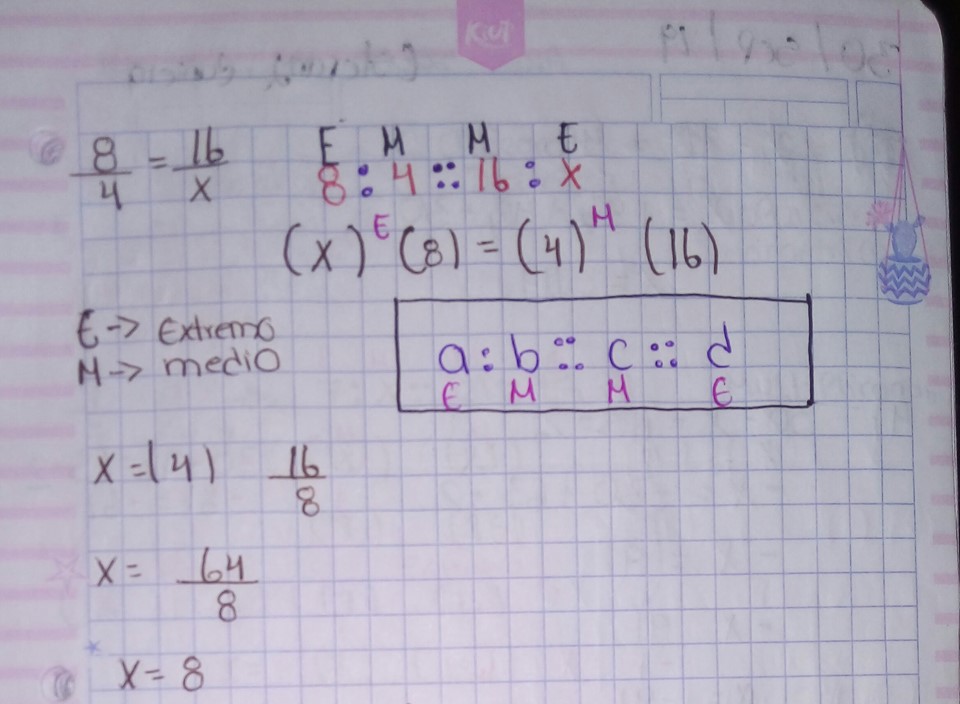 Kiut
8/4 = 16/x
E M M E
8 : 4 :: 16 : x
(x)ᴱ (8) = (4)ᴹ (16)
E -> Extremo
M -> medio
a : b :: c :: d
E M M E
x = (4) 16/8
x = 64/8
x = 8